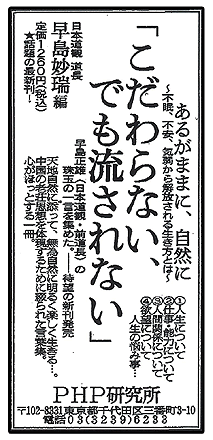 あるがままに、自然に
~不眠、不安、気弱から解放される生き方とは~
「こだわらない、
でも流されない」
日本道観 道長
早島妙瑞 編
定価1260円(税込)
★話題の最新刊!
早島正雄(日本道観・前道長)の
珠玉の一言を集めた。――待望の新刊発売
天地自然に添って、無為自然に明るく楽しく生きる…。
中国の老荘思想を体現するために綴られた言葉集。
心がほっとする一冊
①人生について
②仕事・能力について
③人間関係について
④欲望について
人生の悩み事…
PHP研究所
〒102-8331東京都千代田区三番町3-10
電話03(3239)6233